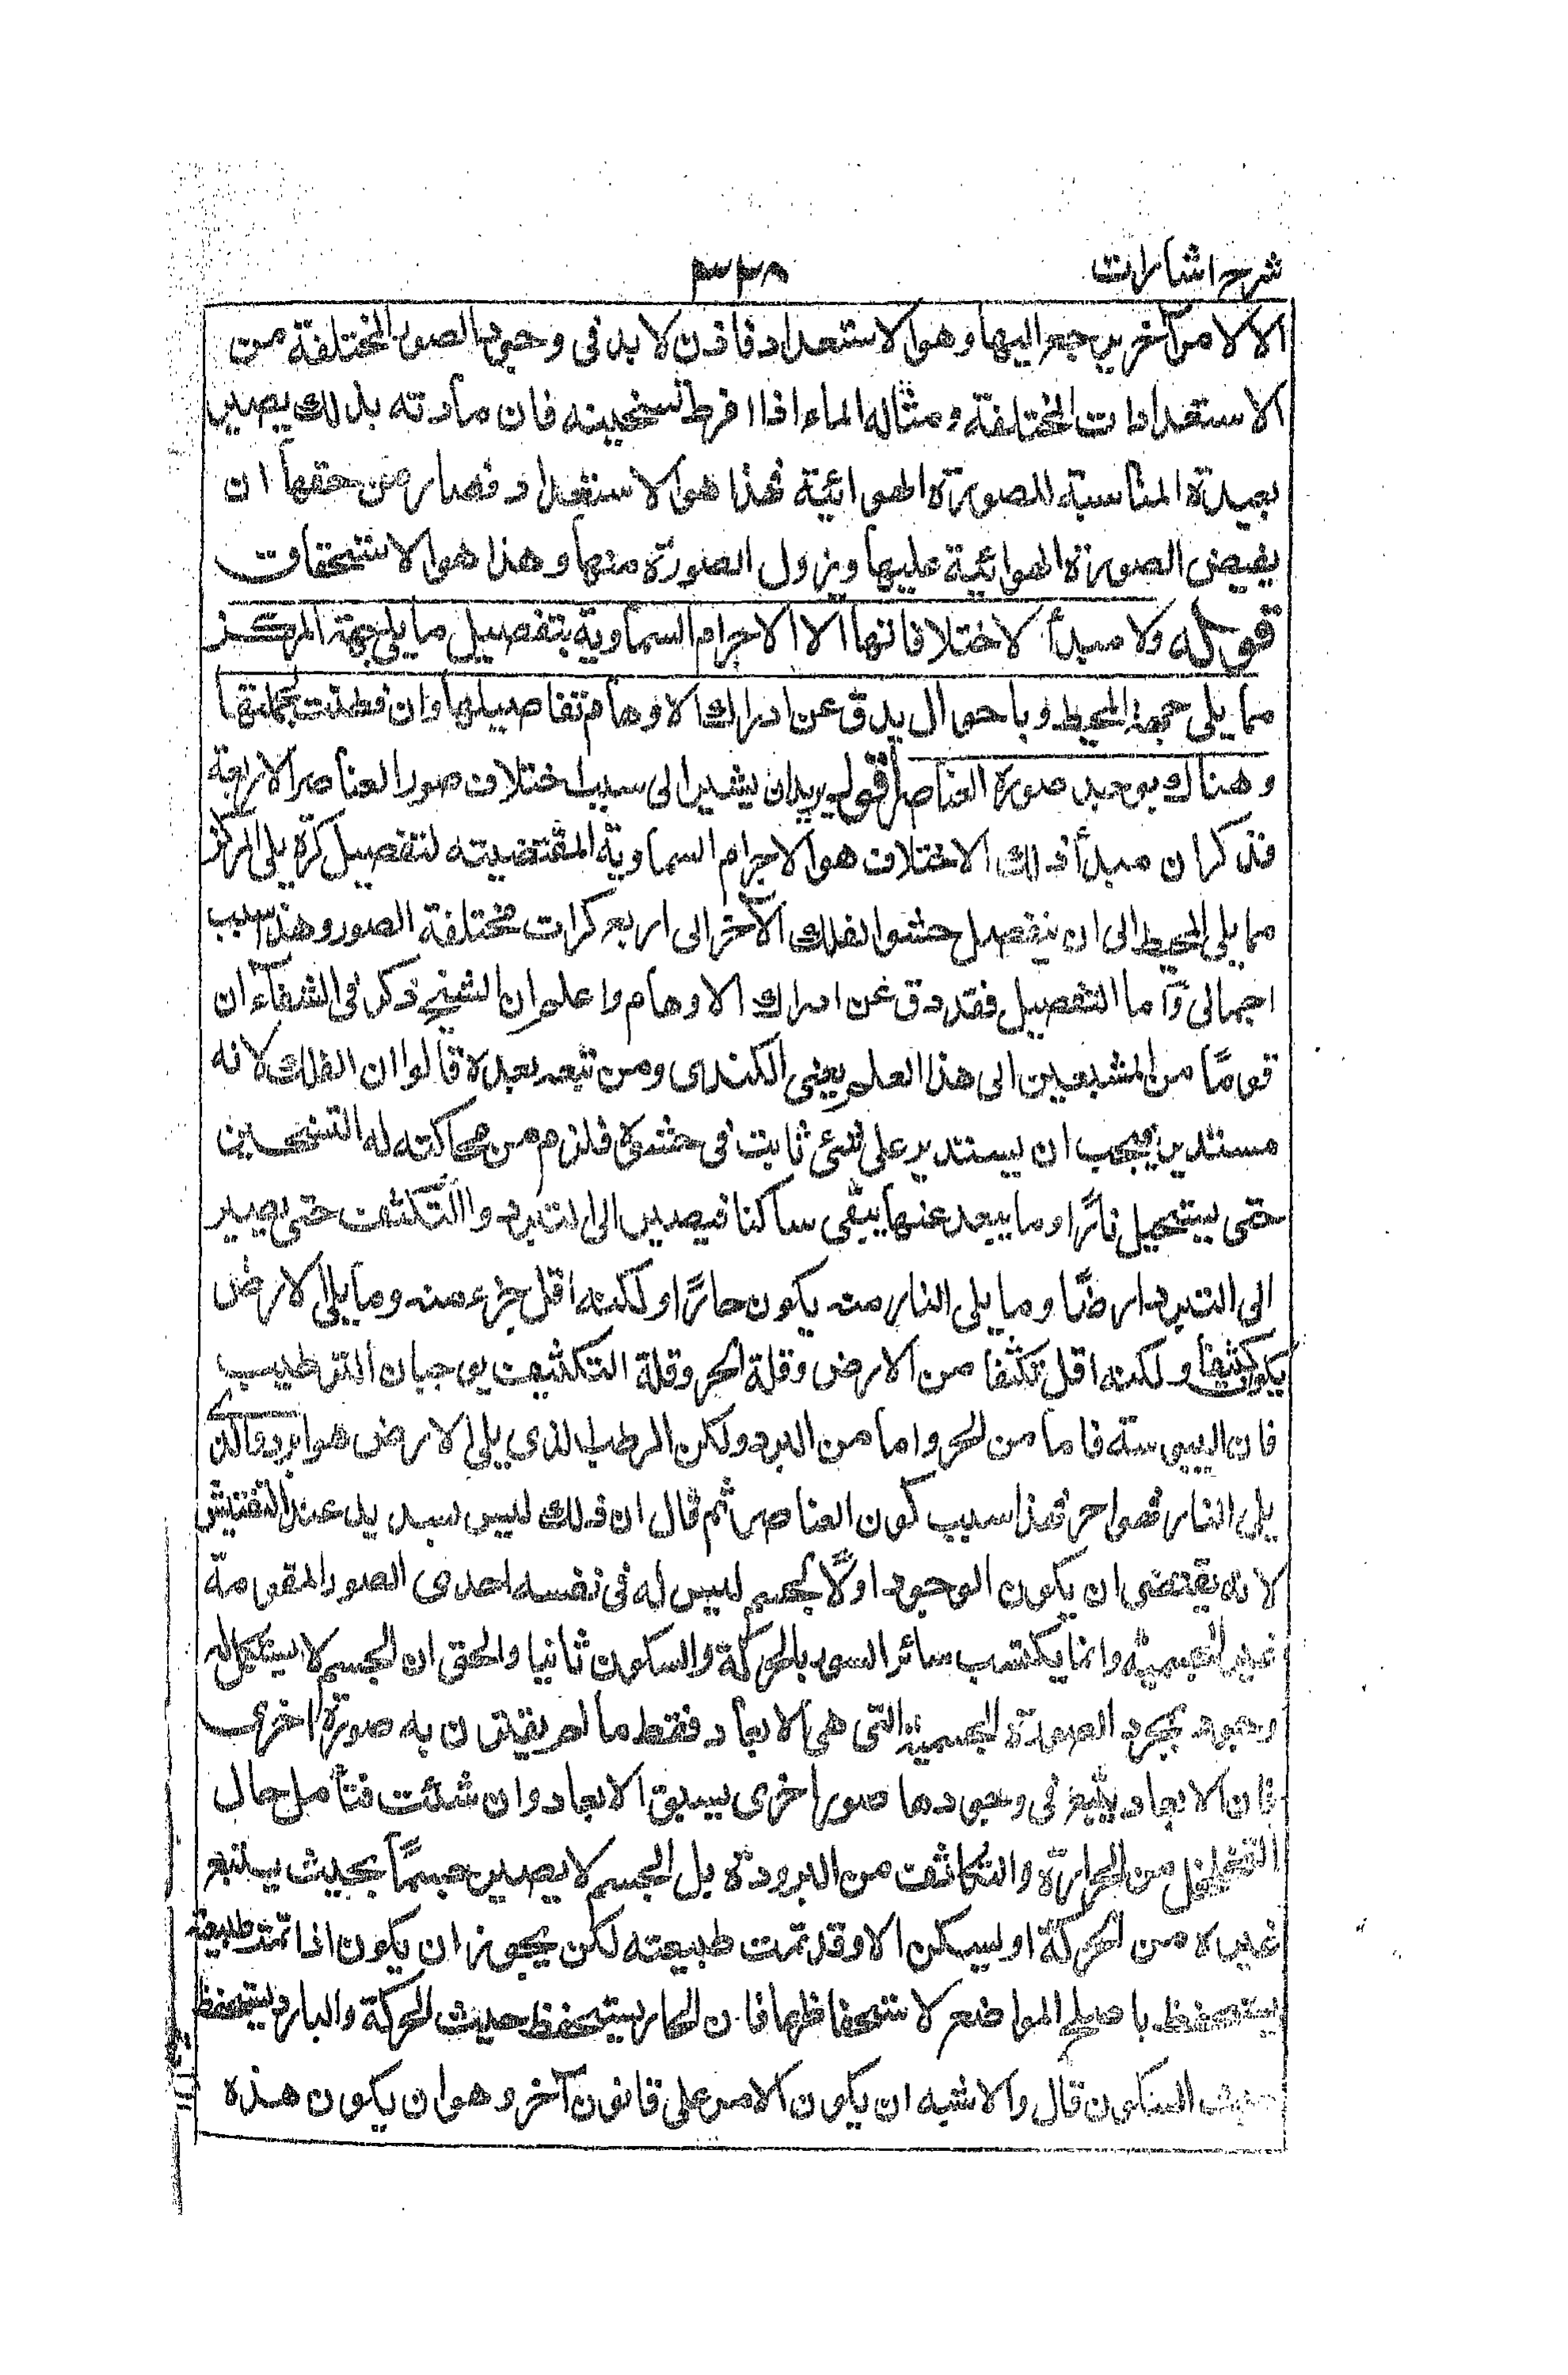 شرح اشارات
۳۳۸
الا لامر آخر يرجع اليها وهو الاستعداد فاذن لا بد فى وجود الصور المختلفة من
الاستعدادات المختلفة ومثاله الماء اذا افرط تسخينه فان مادته بذلك يصير
بعيدة المناسبة للصورة الهوائية فهذا هو الاستعداد فصار من حقها ان
يفيض الصورة الهوائية عليها ويزول الصورة منها وهذا هو الاستحقاق
قوله ولا مبدأ لاختلافاتها الا الاجرام السماوية بتفصيل ما يلى جهة المركز
مما يلى جهة المحيط وباحوال يدق عن ادراك الاوهام تفاصيلها وان فطنت بجملتها
وهناك يوجد صورة العناصر اقول يريد ان يشير الى سبب اختلاف صور العناصر الاربعة
فذكر ان مبدأ ذلك الاختلاف هو الاجرام السماوية المقتضيته لتفصيل كرة يلى المركز
مما يلى المحيط الى ان ينفصل حشو الفلك الآخر الى اربع كرات مختلفة الصور وهذا سبب
اجمالى وآما التفصيل فقد دق عن ادراك الاوهام واعلم ان الشيخ ذكر فى الشفاء ان
قومًا من المشبعين الى هذا العلم يعنى الكندى ومن تبعه بعده قالوا ان الفلك لانه
مستدير يجب ان يستدير على شئ ثابت فى حشوه فلزم من محاكته له التسخين
حتى يستحيل نارًا وما يبعد عنها يبقى ساكنا فيصير الى التبرد والتكثف حتى يصير
الى التبرد ارضًا وما يلى النار منه يكون حارًا ولكنه اقل جزء منه وما يلى الارض
يكون كثيفا ولكنه اقل تكثفا من الارض وقلة الحر وقلة التكثيف يوجبان الترطيب
فان اليبوسة فاما من الحر واما من البرد ولكن الرطب الذى يلى الارض هو ابرد والذى
يلى النار فهو احر فهذا سبب كون العناصر ثم قال ان ذلك ليس بسديد عند التفتيش
لانه يقتضى ان يكون الوجود اولًا لجسم ليس له فى نفسه احدى الصور المقومة
غير الجسمية وانما يكتسب سائر الصور بالحركة والسكون ثانيا والحق ان الجسم لا يستكمل له
وجود بمجرد الصورة الجسمية التى هى الابعاد فقط ما لم يقترن به صورة اخرى
فان الابعاد يتبع فى وجودها صورا اخرى يسبق الابعاد وان شئت فتأمل حال
التخلخل من الحرارة والتكاثف من البرودة بل الجسم لا يصير جسمًا بحيث يستتبع
غيره من الحركة او يسكن الا وقد تمت طبيعته لكن يجوز ان يكون اذا تمت طبيعته
يستحفظ باصلح المواضع لاستحفاظها فان الحار يستحفظ حديث الحركة والبارد يستحفظ
السكون قال والاشبه ان يكون الامر على قانون آخر وهو ان يكون هذه